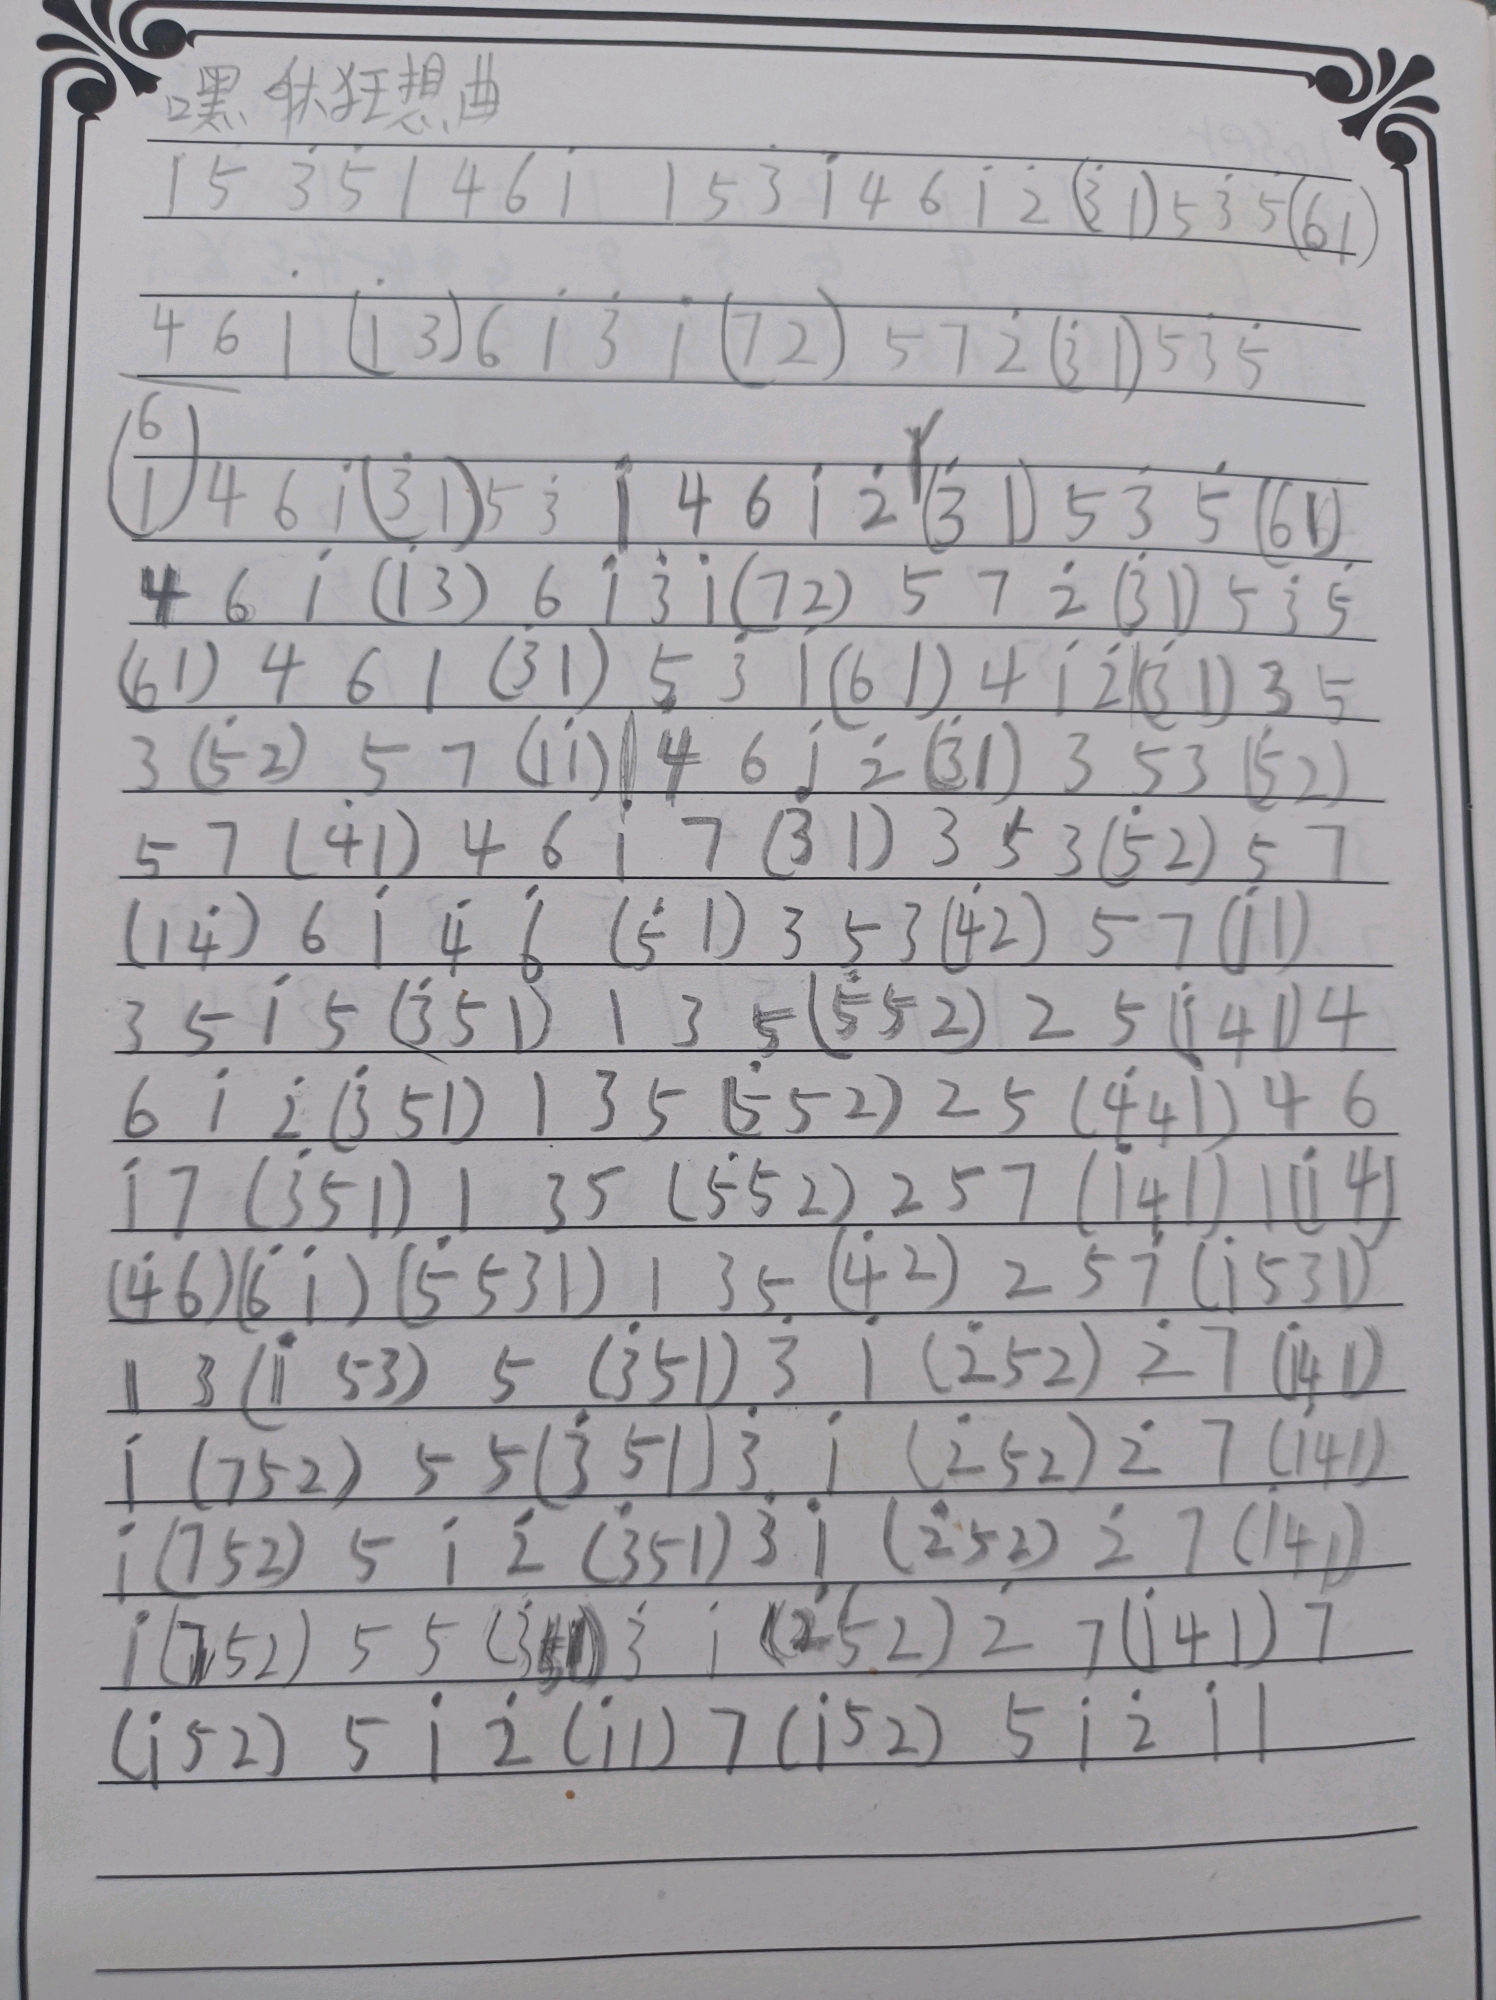 嘿 秋狂想曲
1 5 3̇ 5̇ 1 4 6 i 1 5 3̇ i 4 6 i 2̇ (3̇ 1) 5 3̇ 5̇ (6 1)
4 6 i (i 3) 6 i 3̇ i (7 2) 5 7 2̇ (3̇ 1) 5 3̇ 5̇
(6 1) 4 6 i (3̇ 1) 5 3̇ i 4 6 i 2̇ (3̇ 1) 5 3̇ 5̇ (6 1)
4 6 i (i 3) 6 i 3̇ i (7 2) 5 7 2̇ (3̇ 1) 5 3̇ 5̇
(6 1) 4 6 1 (3̇ 1) 5 3̇ i (6 1) 4 i 2̇ (3̇ 1) 3 5
3 (5̇ 2) 5 7 (1 i) 4 6 i 2̇ (3̇ 1) 3 5 3 (5̇ 2)
5 7 (4̇ 1) 4 6 i 7 (3̇ 1) 3 5 3 (5̇ 2) 5 7
(1 4̇) 6 i 4̇ 6̇ (5̇ 1) 3 5 3 (4̇ 2) 5 7 (i 1)
3 5 i 5 (3̇ 5 1) 1 3 5 (5̇ 5 2) 2 5 (i 4 1) 4
6 i 2̇ (3̇ 5 1) 1 3 5 (5̇ 5 2) 2 5 (4̇ 4 1) 4 6
i 7 (3̇ 5 1) 1 3 5 (5̇ 5 2) 2 5 7 (i 4 1) 1 (i 4)
(4̇ 6) (6̇ i) (5̇ 5 3 1) 1 3 5 (4̇ 2) 2 5 7̇ (i 5 3 1)
1 3 (i 5 3) 5 (3̇ 5 1) 3̇ i (2̇ 5 2) 2̇ 7 (i 4 1)
i (7 5 2) 5 5 (3̇ 5 1) 3̇ i (2̇ 5 2) 2̇ 7 (i 4 1)
i (7 5 2) 5 i 2̇ (3̇ 5 1) 3̇ i (2̇ 5 2) 2̇ 7 (i 4 1)
i (7 5 2) 5 5 (3̇ 5 1) 3̇ i (2̇ 5 2) 2̇ 7 (i 4 1) 7
(i 5 2) 5 i 2̇ (i 1) 7 (i 5 2) 5 i 2̇ i 1